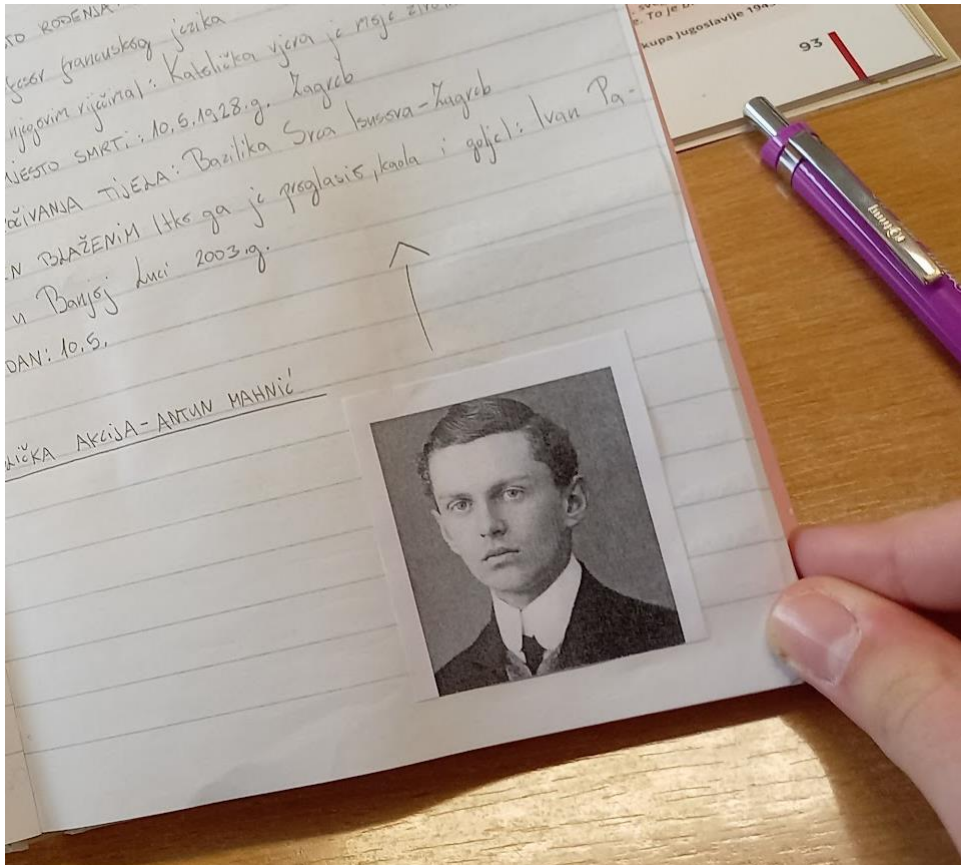 STO ROĐENJA:
fesor francuskog jezika
njegovim riječima): Katolička vjera je moje
MJESTO SMRTI: 10.5.1928.g. Zagreb
OČIVANJA TIJELA: Bazilika Srca Isusova-Zagreb
N BLAŽENIM (tko ga je proglasio, kada i gdje): Ivan Pa-
u Banjoj Luci 2003.g.
DAN: 10.5.
LIČKA AKCIJA-ANTUN MAHNIĆ
. To je
kupa Jugoslavije 194
93